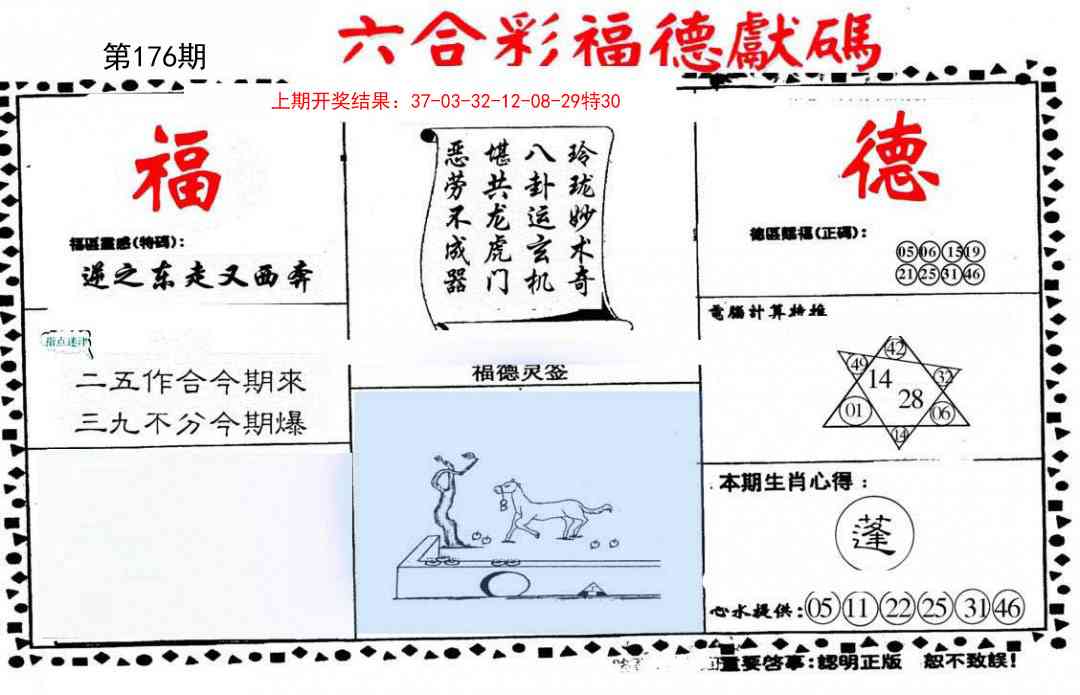 第176期
六合彩福德獻碼
上期开奖结果：37-03-32-12-08-29特30
福
福區靈感(特碼)：
逆之东走又西奔
指点迷津
二五作合今期來
三九不分今期爆
玲珑妙术奇
八卦运玄机
堪共龙虎门
恶劳不成器
福德灵签
8
德
德區賜福(正碼)：
05 06 15 19
21 25 31 46
電腦計算特推
42
49 14 32
28
01 06
14
本期生肖心得：
蓬
心水提供：05 11 22 25 31 46
重要啓事：認明正版 恕不致誤！